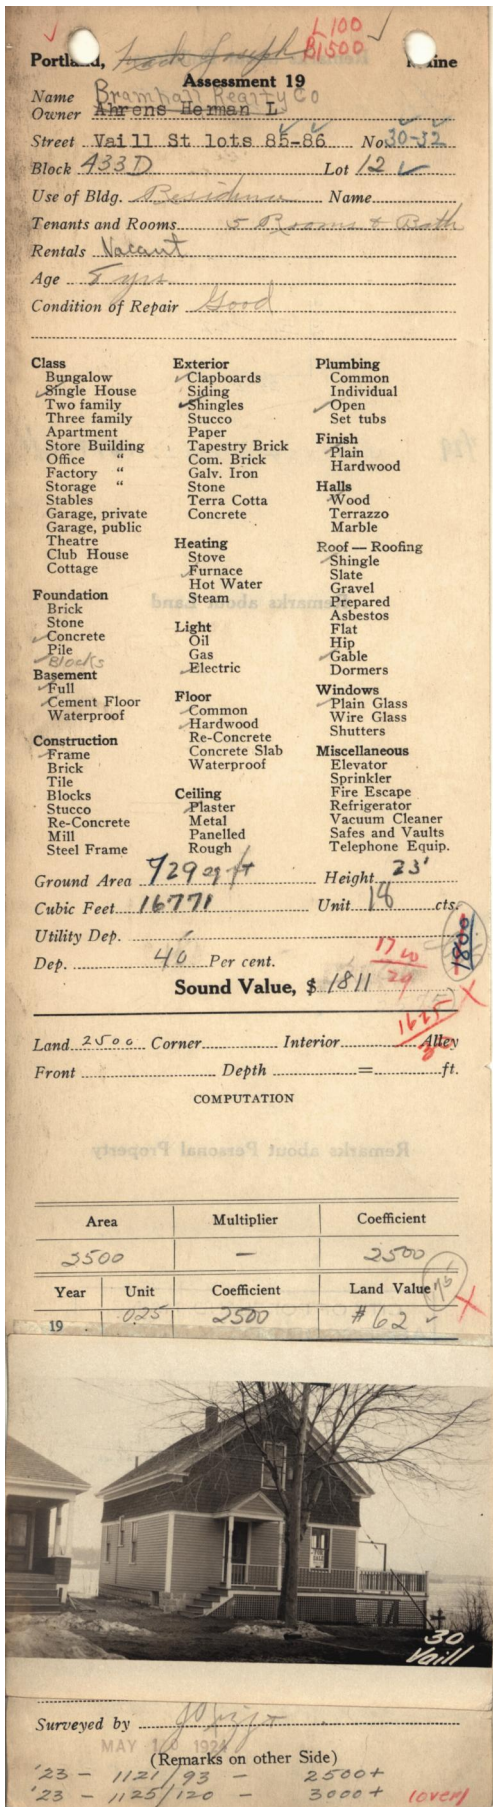 L100
B1500
Portland, Maine
Assessment 19
Bramhall Realty Co
Name
Owner Ahrens Herman L
Street Vaill St lots 85-86 No. 30-32
Block 433D Lot 12
Use of Bldg. Residence Name
Tenants and Rooms 5 Rooms + Bath
Rentals Vacant
Age 5 yrs
Condition of Repair Good
Class
Bungalow
Single House
Two family
Three family
Apartment
Store Building
Office "
Factory "
Storage "
Stables
Garage, private
Garage, public
Theatre
Club House
Cottage
Foundation
Brick
Stone
Concrete
Pile
Blocks
Basement
Full
Cement Floor
Waterproof
Construction
Frame
Brick
Tile
Blocks
Stucco
Re-Concrete
Mill
Steel Frame
Exterior
Clapboards
Siding
Shingles
Stucco
Paper
Tapestry Brick
Com. Brick
Galv. Iron
Stone
Terra Cotta
Concrete
Heating
Stove
Furnace
Hot Water
Steam
Light
Oil
Gas
Electric
Floor
Common
Hardwood
Re-Concrete
Concrete Slab
Waterproof
Ceiling
Plaster
Metal
Panelled
Rough
Plumbing
Common
Individual
Open
Set tubs
Finish
Plain
Hardwood
Halls
Wood
Terrazzo
Marble
Roof — Roofing
Shingle
Slate
Gravel
Prepared
Asbestos
Flat
Hip
Gable
Dormers
Windows
Plain Glass
Wire Glass
Shutters
Miscellaneous
Elevator
Sprinkler
Fire Escape
Refrigerator
Vacuum Cleaner
Safes and Vaults
Telephone Equip.
Ground Area 729 sq ft Height 23'
Cubic Feet 16771 Unit 18 cts.
1800
Utility Dep.
Dep. 40 Per cent.
Sound Value, $ 1811
1625
Land 2500 Corner Interior Alley
Front Depth = ft.
COMPUTATION
Remarks about Personal Property
Area Multiplier Coefficient
2500 — 2500
Year Unit Coefficient Land Value
19 .025 2500 #62
30
Vaill
Surveyed by
MAY 10 192
(Remarks on other Side)
'23 - 1121/93 - 2500+
'23 - 1125/120 - 3000+ (over)